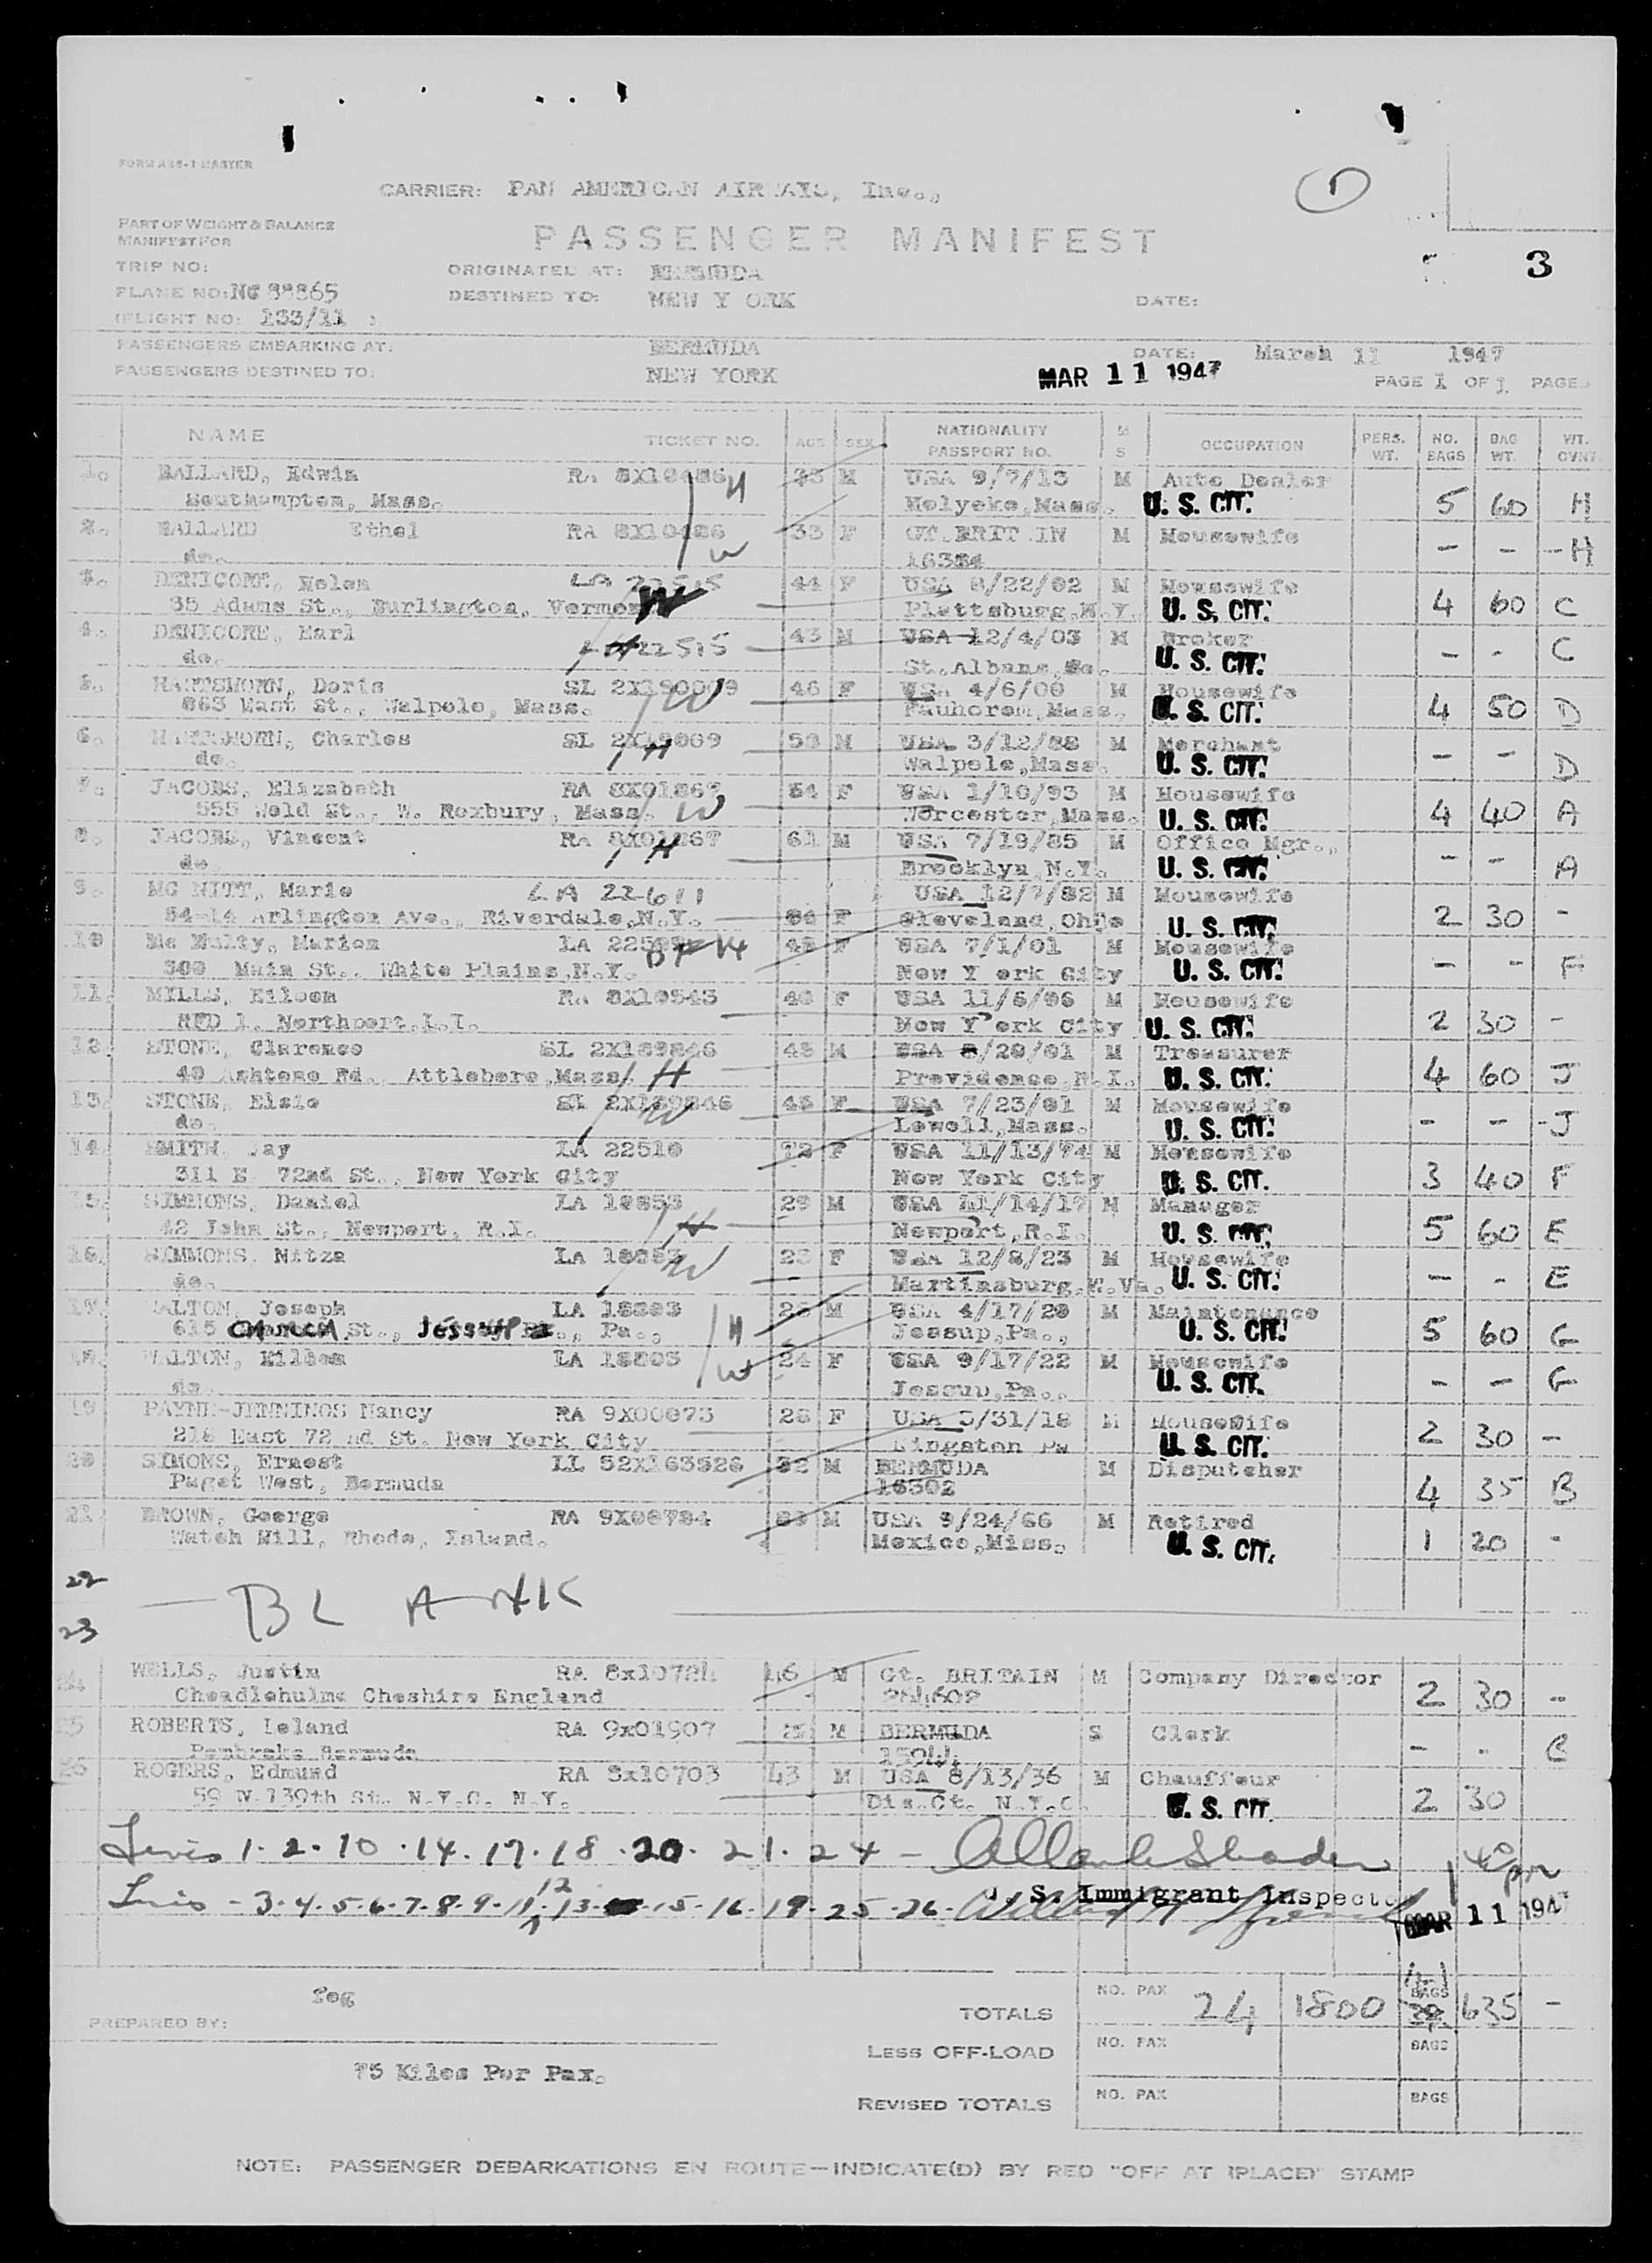 FORM A26-1 MASTER
CARRIER: PAN AMERICAN AIRWAYS, Inc.,
PART OF WEIGHT & BALANCE
MANIFEST FOR
PASSENGER MANIFEST
TRIP NO:
ORIGINATED AT: BERMUDA
3
PLANE NO: NC 88865
DESTINED TO: NEW Y ORK
DATE:
(FLIGHT NO: 133/11 )
PASSENGERS EMBARKING AT: BERMUDA
DATE: March 11 1947
PASSENGERS DESTINED TO: NEW YORK
MAR 11 1947
PAGE 1 OF 1 PAGES
NAME TICKET NO. AGE SEX NATIONALITY PASSPORT NO. M S OCCUPATION PERS. WT. NO. BAGS BAG WT. WT. CVNT.
1. BALLARD, Edwin RA 8X10486 H 33 M USA 9/7/13 M Auto Dealer
Southampton, Mass. Holyoke, Mass. U. S. CIT. 5 60 H
2. BALLARD Ethel RA 8X10486 W 33 F GT.BRIT.IN M Housewife
do. 16384 - - - H
3. DENICORE, Helen LA 22515 44 F USA 8/22/02 M Housewife
35 Adams St., Burlington, Vermont W Plattsburg, N.Y. U. S. CIT. 4 60 C
4. DENICORE, Earl LA 22515 43 M USA 12/4/03 M Broker
do. H St. Albans, U. S. CIT. - - C
5. HARTSHORN, Doris SL 2X190009 46 F USA 4/6/00 M Housewife
863 East St., Walpole, Mass. W Mass. U. S. CIT. 4 50 D
6. HARTSHORN, Charles SL 2X19009 58 M USA 3/12/88 M Merchant
do. H Walpole, Mass. U. S. CIT. - - D
7. JACOBS, Elizabeth RA 8X01867 54 F USA 1/10/93 M Housewife
555 Weld St., W. Roxbury, Mass. W Worcester, Mass. U. S. CIT. 4 40 A
8. JACOBS, Vincent RA 8X01867 61 M USA 7/19/85 M Office Mgr.,
do. H Brooklyn N.Y. U. S. CIT. - - A
9. MC NITT, Marie LA 22611 USA 12/7/82 M Housewife
54-14 Arlington Ave., Riverdale, N.Y. F Cleveland, Ohio U. S. CIT. 2 30 -
10 Mc Nulty, Marion LA F USA 7/1/01 M Housewife
300 Main St., White Plains, N.Y. New Y ork City U. S. CIT. - - F
11. MILLS, Eileen RA 8X10543 40 F USA 11/6/06 M Housewife
RFD 1. Northport, L.I. New Y ork City U. S. CIT. 2 30 -
12. STONE, Clarence SL 2X189846 45 M USA 8/20/01 M Treasurer
40 Ashtone Rd., Attleboro, Mass. H Providence, R.I. U. S. CIT. 4 60 J
13. STONE, Elsie SL 2X189846 45 F USA 7/23/01 M Housewife
do. W Lowell, Mass. U. S. CIT. - - - J
14. SMITH, Jay LA 22510 72 F USA 11/13/74 M Housewife
311 E 72nd St., New York City New York City U. S. CIT. 3 40 F
15. SIMMONS, Daniel LA 18853 29 M USA 11/14/17 M Manager
42 John St., Newport, R.I. H Newport, R.I. U. S. CIT. 5 60 E
16. SIMMONS, Nitza LA 18853 23 F USA 12/8/23 M Housewife
do. W Martinsburg, W. Va. U. S. CIT. - - E
17. WALTON, Joseph LA 18803 26 M USA 4/17/20 M Maintenance
615 CHURCH St., JESSUP Pa., H Jessup, Pa., U. S. CIT. 5 60 G
18. WALTON, Eileen LA 18803 24 F USA 9/17/22 M Housewife
do. W Jessup, Pa., U. S. CIT. - - G
19 PAYNE-JENNINGS Nancy RA 9X00873 28 F USA 3/31/18 M Housewife
218 East 72 nd St. New York City Kingston Pa U. S. CIT. 2 30 -
20 SIMONS, Ernest LL 52X163526 32 M BERMUDA M Dispatcher
Paget West, Bermuda 16302 4 35 B
21 BROWN, George RA 9X08784 M USA 9/24/66 M Retired
Watch Hill, Rhode, Island. Mexico, Miss. U. S. CIT. 1 20 -
22
BLANK
23
24 WELLS, Justin RA 8x10724 46 M Gt. BRITAIN M Company Director
Cheadlehulme Cheshire England 284602 2 30 -
25 ROBERTS, Leland RA 9x01907 M BERMUDA S Clerk
Pembroke Bermuda - - C
26 ROGERS, Edmund RA 8x10703 43 M USA 8/13/36 M Chauffeur
59 W 139th St. N.Y.C. N.Y. Dis. Ct. N.Y.C. U. S. CIT. 2 30
1. 2. 10 . 14. 17. 18 . 20. 21. 24 -
U. S. Immigrant Inspector
- 3. 4. 5. 6. 7. 8. 9. 11. 12 13. 15. 16. 19. 25. 26.
MAR 11 1947
PREPARED BY:
TOTALS NO. PAX 24 1800 BAGS 635 -
LESS OFF-LOAD NO. PAX BAGS
75 Kilos Per Pax.
REVISED TOTALS NO. PAX BAGS
NOTE: PASSENGER DEBARKATIONS EN ROUTE—INDICATE(D) BY RED "OFF AT (PLACE)" STAMP